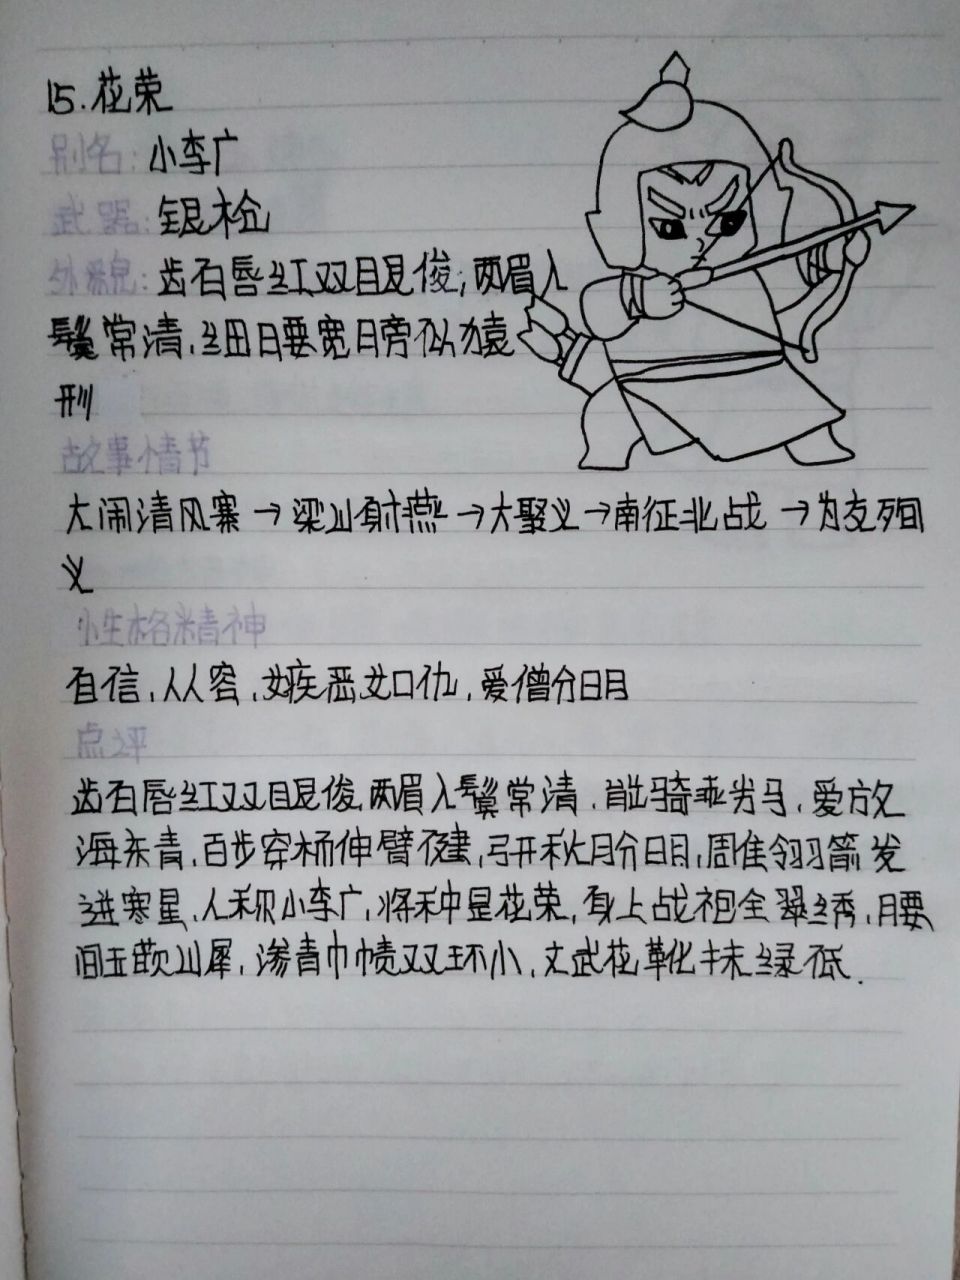 15.花荣
别名:小李广
武器:银枪
外貌:齿石唇红双眼俊,两眉入
鬓常清,细腰宽膀似猿
形
故事情节
大闹清风寨→梁山射燕→大聚义→南征北战→为友殉
义
性格精神
自信,从容,嫉恶如仇,爱憎分明
点评
齿石唇红双眼俊,两眉入鬓常清,骑乖劣马,爱放
海东青,百步穿杨伸臂健,弓开秋月分明,雕翎箭发
迸寒星,人称小李广,将种是花荣,身上战袍金翠绣,腰
间玉嵌山犀,渗青巾帻双环小,文武花靴抹绿低.